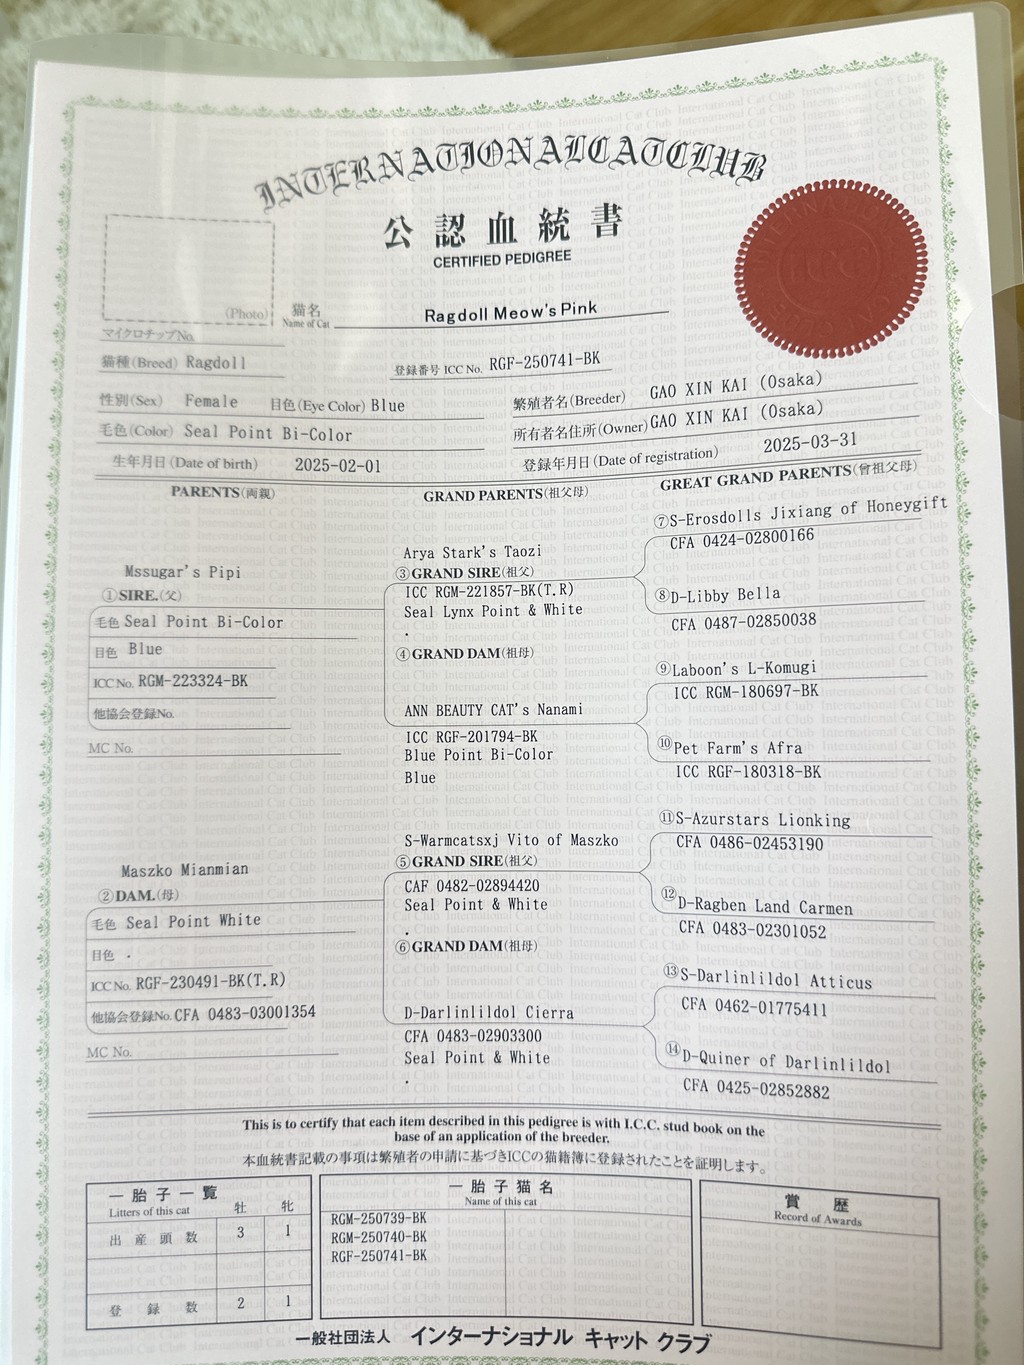 INTERNATIONALCATCLUB
公認血統書
CERTIFIED PEDIGREE
(Photo)
猫名
Name of Cat
Ragdoll Meow's Pink
マイクロチップNo.
猫種(Breed) Ragdoll
登録番号 ICC No. RGF-250741-BK
性別(Sex) Female 目色(Eye Color) Blue
繁殖者名(Breeder) GAO XIN KAI (Osaka)
毛色(Color) Seal Point Bi-Color
所有者名住所(Owner) GAO XIN KAI (Osaka)
生年月日(Date of birth) 2025-02-01
登録年月日(Date of registration) 2025-03-31
PARENTS(両親)
GRAND PARENTS(祖父母)
GREAT GRAND PARENTS(曾祖父母)
Mssugar's Pipi
①SIRE.(父)
毛色 Seal Point Bi-Color
目色 Blue
ICC No. RGM-223324-BK
他協会登録No.
MC No.
Arya Stark's Taozi
③GRAND SIRE(祖父)
ICC RGM-221857-BK(T.R)
Seal Lynx Point & White
.
④GRAND DAM(祖母)
ANN BEAUTY CAT's Nanami
ICC RGF-201794-BK
Blue Point Bi-Color
Blue
⑦S-Erosdolls Jixiang of Honeygift
CFA 0424-02800166
⑧D-Libby Bella
CFA 0487-02850038
⑨Laboon's L-Komugi
ICC RGM-180697-BK
⑩Pet Farm's Afra
ICC RGF-180318-BK
Maszko Mianmian
②DAM.(母)
毛色 Seal Point White
目色 .
ICC No. RGF-230491-BK(T.R)
他協会登録No. CFA 0483-03001354
MC No.
S-Warmcatsxj Vito of Maszko
⑤GRAND SIRE(祖父)
CAF 0482-02894420
Seal Point & White
.
⑥GRAND DAM(祖母)
D-Darlinlildol Cierra
CFA 0483-02903300
Seal Point & White
.
⑪S-Azurstars Lionking
CFA 0486-02453190
⑫D-Ragben Land Carmen
CFA 0483-02301052
⑬S-Darlinlildol Atticus
CFA 0462-01775411
⑭D-Quiner of Darlinlildol
CFA 0425-02852882
This is to certify that each item described in this pedigree is with I.C.C. stud book on the
base of an application of the breeder.
本血統書記載の事項は繁殖者の申請に基づきICCの猫籍簿に登録されたことを証明します。
一胎子一覧 牡 牝
Litters of this cat
出産頭数 3 1
登録数 2 1
一胎子猫名
Name of this cat
RGM-250739-BK
RGM-250740-BK
RGF-250741-BK
賞歴
Record of Awards
一般社団法人 インターナショナル キャット クラブ